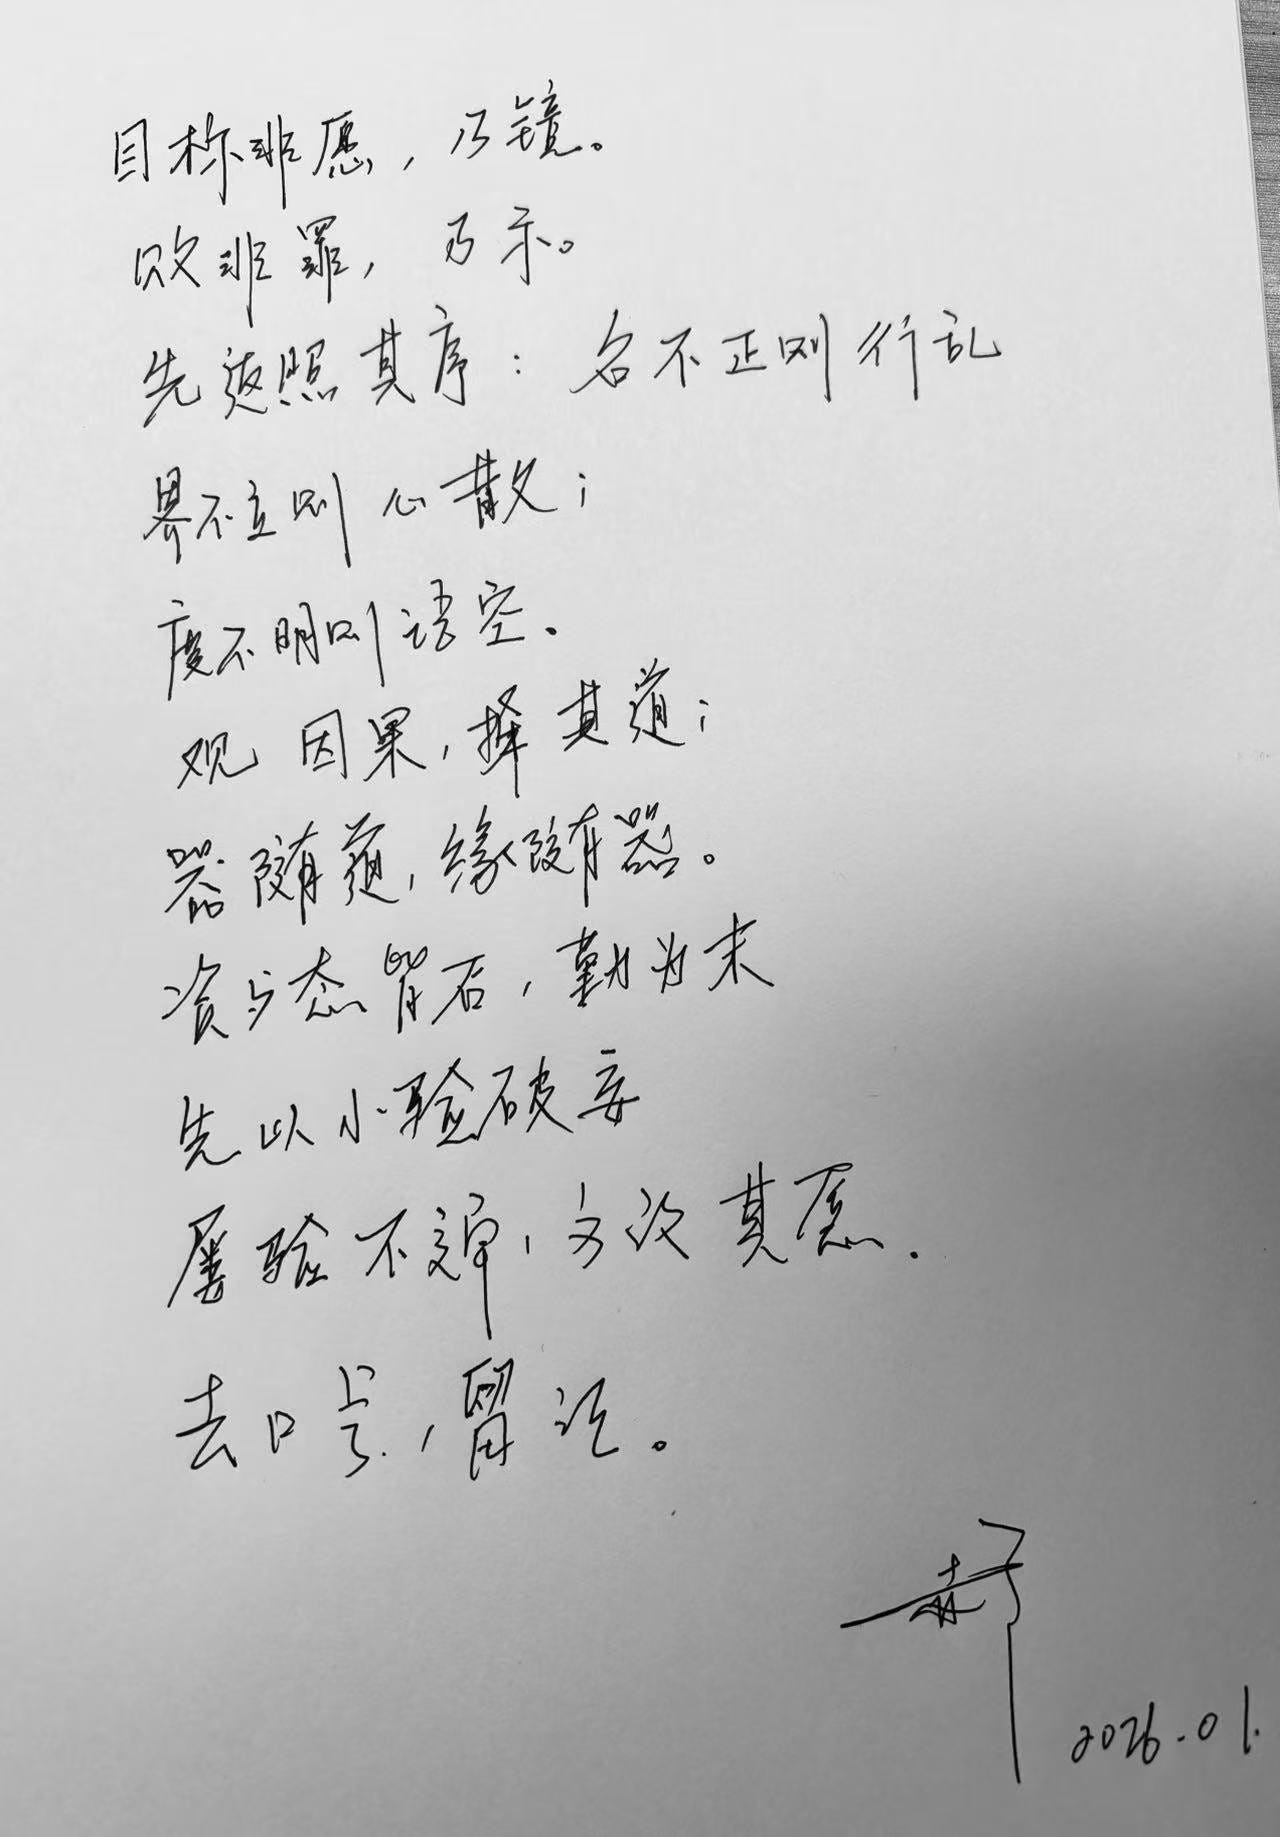 目标非愿，乃镜。
败非罪，乃示。
先返照其序：名不正则行乱
界不立则心散；
度不明则语空.
观因果，择其道；
器随道，缘随器。
资与态皆后，勤为末
先以小验破妄
屡验不辍，方没其愿.
去口号，留证。
郝
2026.01.